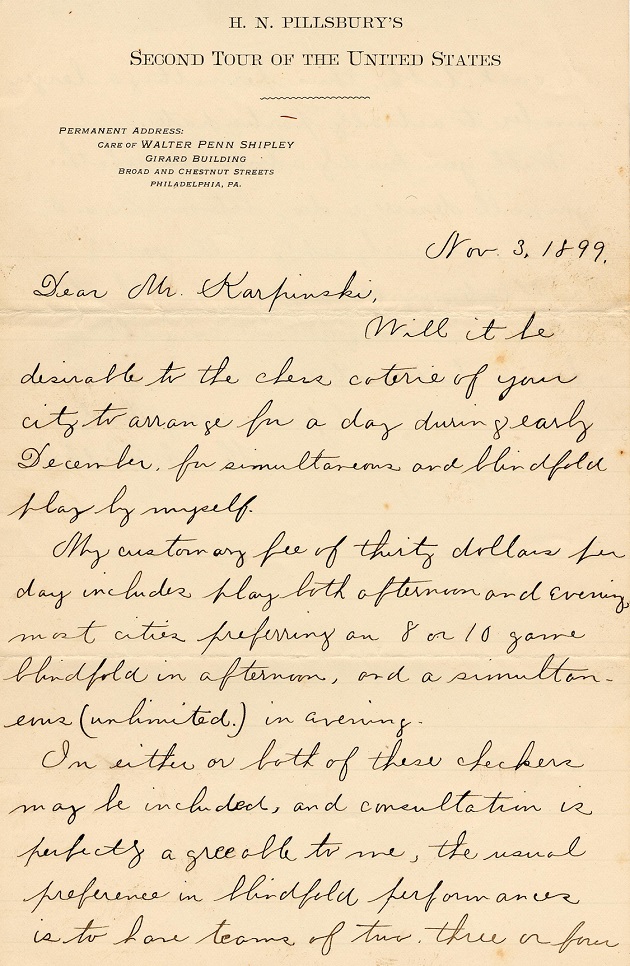 H. N. PILLSBURY'S
SECOND TOUR OF THE UNITED STATES
PERMANENT ADDRESS:
CARE OF WALTER PENN SHIPLEY
GIRARD BUILDING
BROAD AND CHESTNUT STREETS
PHILADELPHIA, PA.
Nov. 3, 1899.
Dear Mr. Karpinski,
Will it be
desirable to the chess coterie of your
city to arrange for a day during early
December, for simultaneous and blindfold
play by myself.
My customary fee of thirty dollars per
day includes play both afternoon and evening,
most cities preferring an 8 or 10 game
blindfold in afternoon, and a simultan-
eous (unlimited.) in evening.
In either or both of these checkers
may be included, and consultation is
perfectly agreeable to me, the usual
preference in blindfold performances
is to have teams of two, three or four